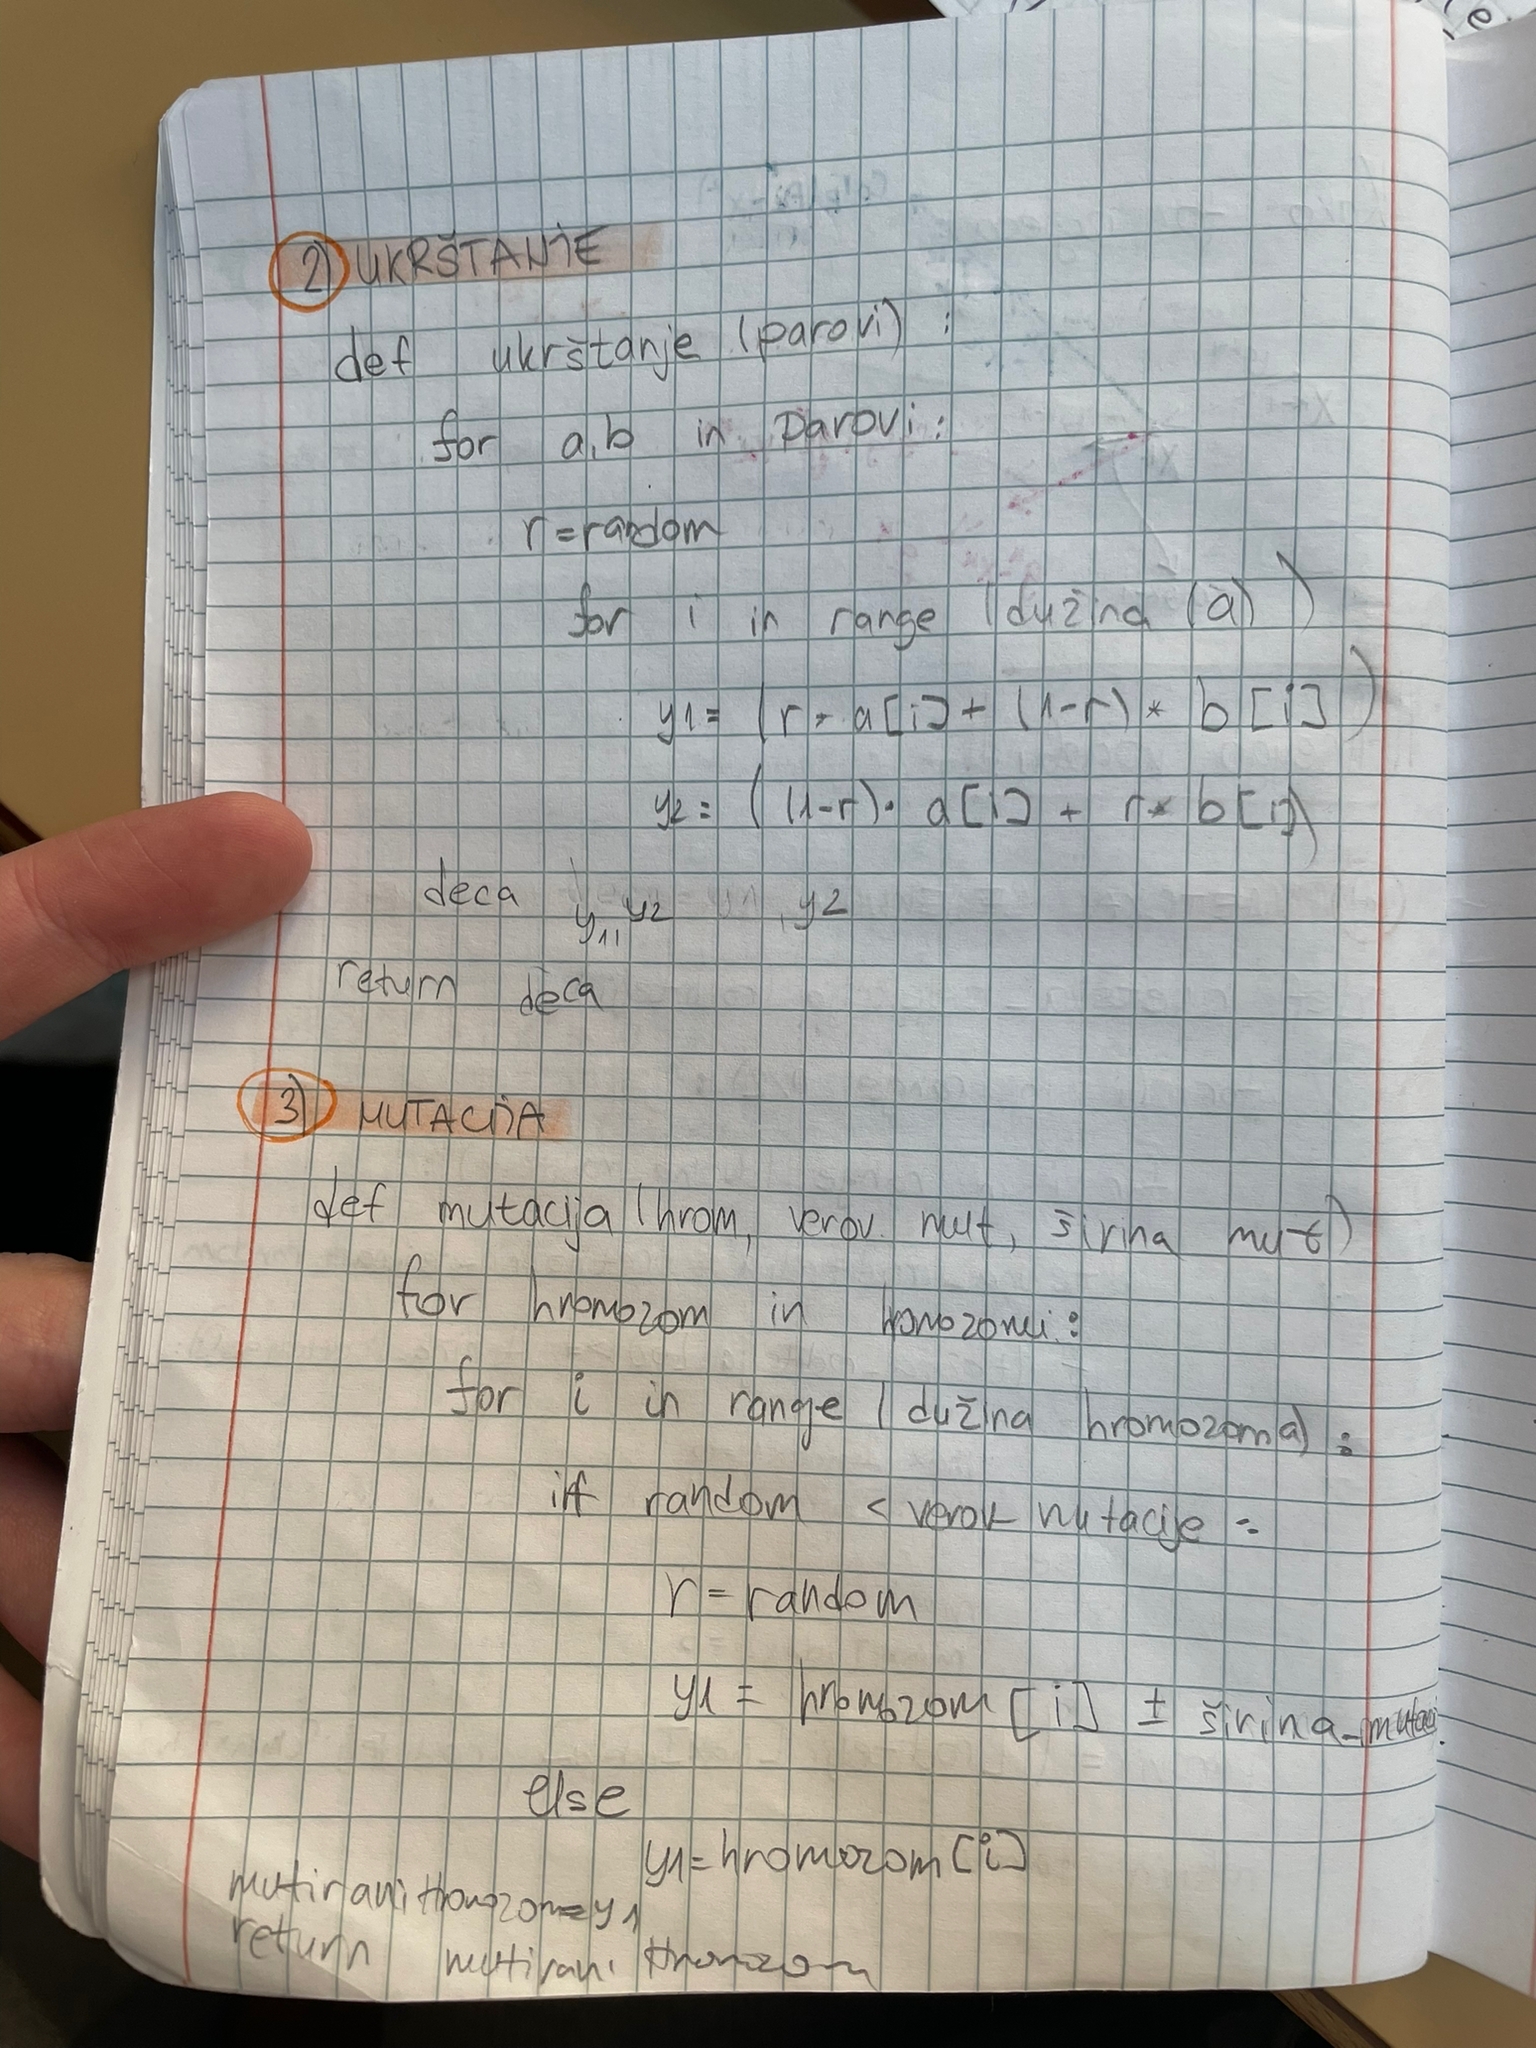 2) UKRŠTANJE
def ukrštanje (parovi) :
for a,b in Parovi:
r=random
for i in range (dužina (a))
y1= (r * a[i] + (1-r) * b[i])
y2= ((1-r) * a[i] + r* b[i])
deca y1, y2 , y2
return deca
3) MUTACIJA
def mutacija (hrom, verov. mut, širina mut)
for hromozom in homozomi:
for i in range (dužina hromozoma) :
if random < verov mutacije :
r=random
y1 = hromozom [i] ± širina_mutaci
else
y1=hromozom [i]
mutirani Hromozom=y1
return mutirani Hromozom